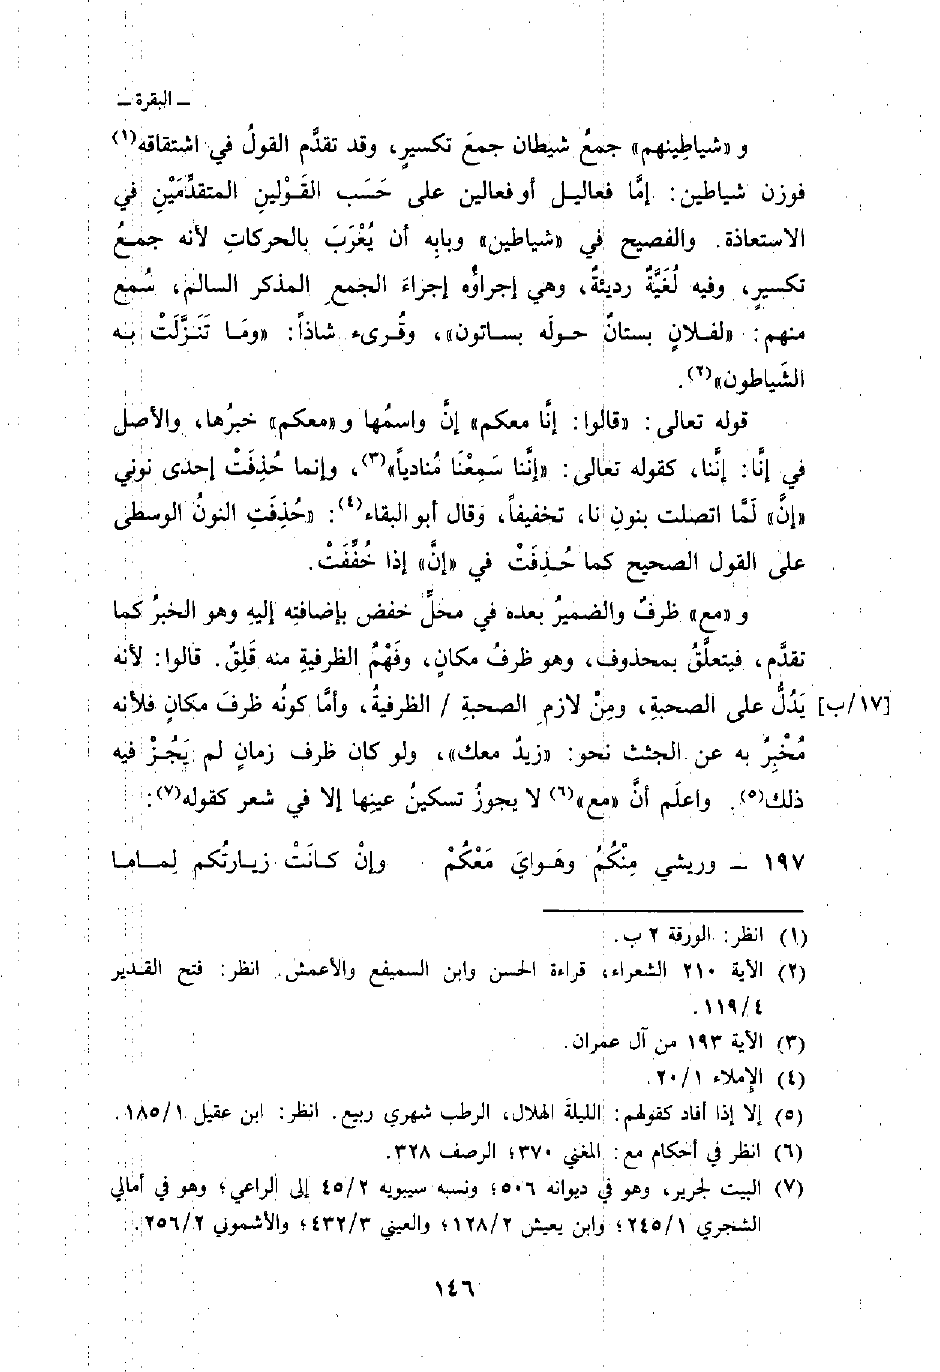 ـ البقرة ـ
و «شياطِينهم» جمعُ شيطان جمعَ تكسيرٍ، وقد تقدَّم القولُ في اشتقاقه(١)
فوزن شياطين: إمَّا فعاليل أو فعالين على حَسَب القَوْلينِ المتقدِّمَيْنِ في
الاستعاذة. والفصيح في «شياطين» وبابِه أن يُعْرَبَ بالحركاتِ لأنه جمعُ
تكسيرٍ، وفيه لُغَيَّةٌ رديئةٌ، وهي إجراؤُه إجراءَ الجمعِ المذكر السالم، سُمع
منهم: «لفلانٍ بستانٌ حولَه بساتون»، وقُرىء شاذاً: «ومَا تَنَزَّلَتْ به
الشَياطون»(٢).
قوله تعالى: «قالوا: إنَّا معكم» إنَّ واسمُها و«معكم» خبرُها، والأصل
في إنَّا: إنَّنا، كقوله تعالى: «إنَّنا سَمِعْنَا مُنادياً»(٣)، وإنما حُذِفَتْ إحدى نوني
«إنَّ» لَمَّا اتصلت بنونِ نا، تخفيفاً، وقال أبو البقاء(٤): «حُذِفَتِ النونُ الوسطى
على القول الصحيح كما حُذِفَتْ في «إنَّ» إذا خُفِّفَتْ.
و «مع» ظرفٌ والضميرُ بعده في محلِّ خفض بإضافتِه إليهِ وهو الخبرُ كما
تقدَّم، فيتعلَّقُ بمحذوف، وهو ظرفُ مكانٍ، وفَهْمُ الظرفيةِ منه قَلِقٌ. قالوا: لأنه
[١٧/ب] يَدُلُّ على الصحبةِ، ومِنْ لازمِ الصحبةِ / الظرفيةُ، وأمَّا كونُه ظرفَ مكانٍ فلأنه
مُخْبِرٌ به عن الجثث نحو: «زيدٌ معك»، ولو كان ظرف زمانٍ لم يَجُزْ فيه
ذلك(٥). واعلَم أنَّ «مع»(٦) لا يجوزُ تسكينُ عينِها إلا في شعر كقوله(٧):
١٩٧ ـ وريشي مِنْكُمُ وهَوايَ مَعْكُمْ وإنْ كانَتْ زيارتُكم لِماما
(١) انظر: الورقة ٢ ب.
(٢) الآية ٢١٠ الشعراء، قراءة الحسن وابن السميفع والأعمش. انظر: فتح القدير
٤/ ١١٩.
(٣) الآية ١٩٣ من آل عمران.
(٤) الإملاء ٢٠/١.
(٥) إلا إذا أفاد كقولهم: الليلةَ الهلال، الرطب شهري ربيع. انظر: ابن عقيل ١٨٥/١.
(٦) انظر في أحكام مع: المغني ٣٧٠؛ الرصف ٣٢٨.
(٧) البيت لجرير، وهو في ديوانه ٥٠٦؛ ونسبه سيبويه ٤٥/٢ إلى الراعي؛ وهو في أمالي
الشجري ٢٤٥/١؛ وابن يعيش ١٢٨/٢؛ والعيني ٤٣٢/٣؛ والأشموني ٢٥٦/٢.
١٤٦